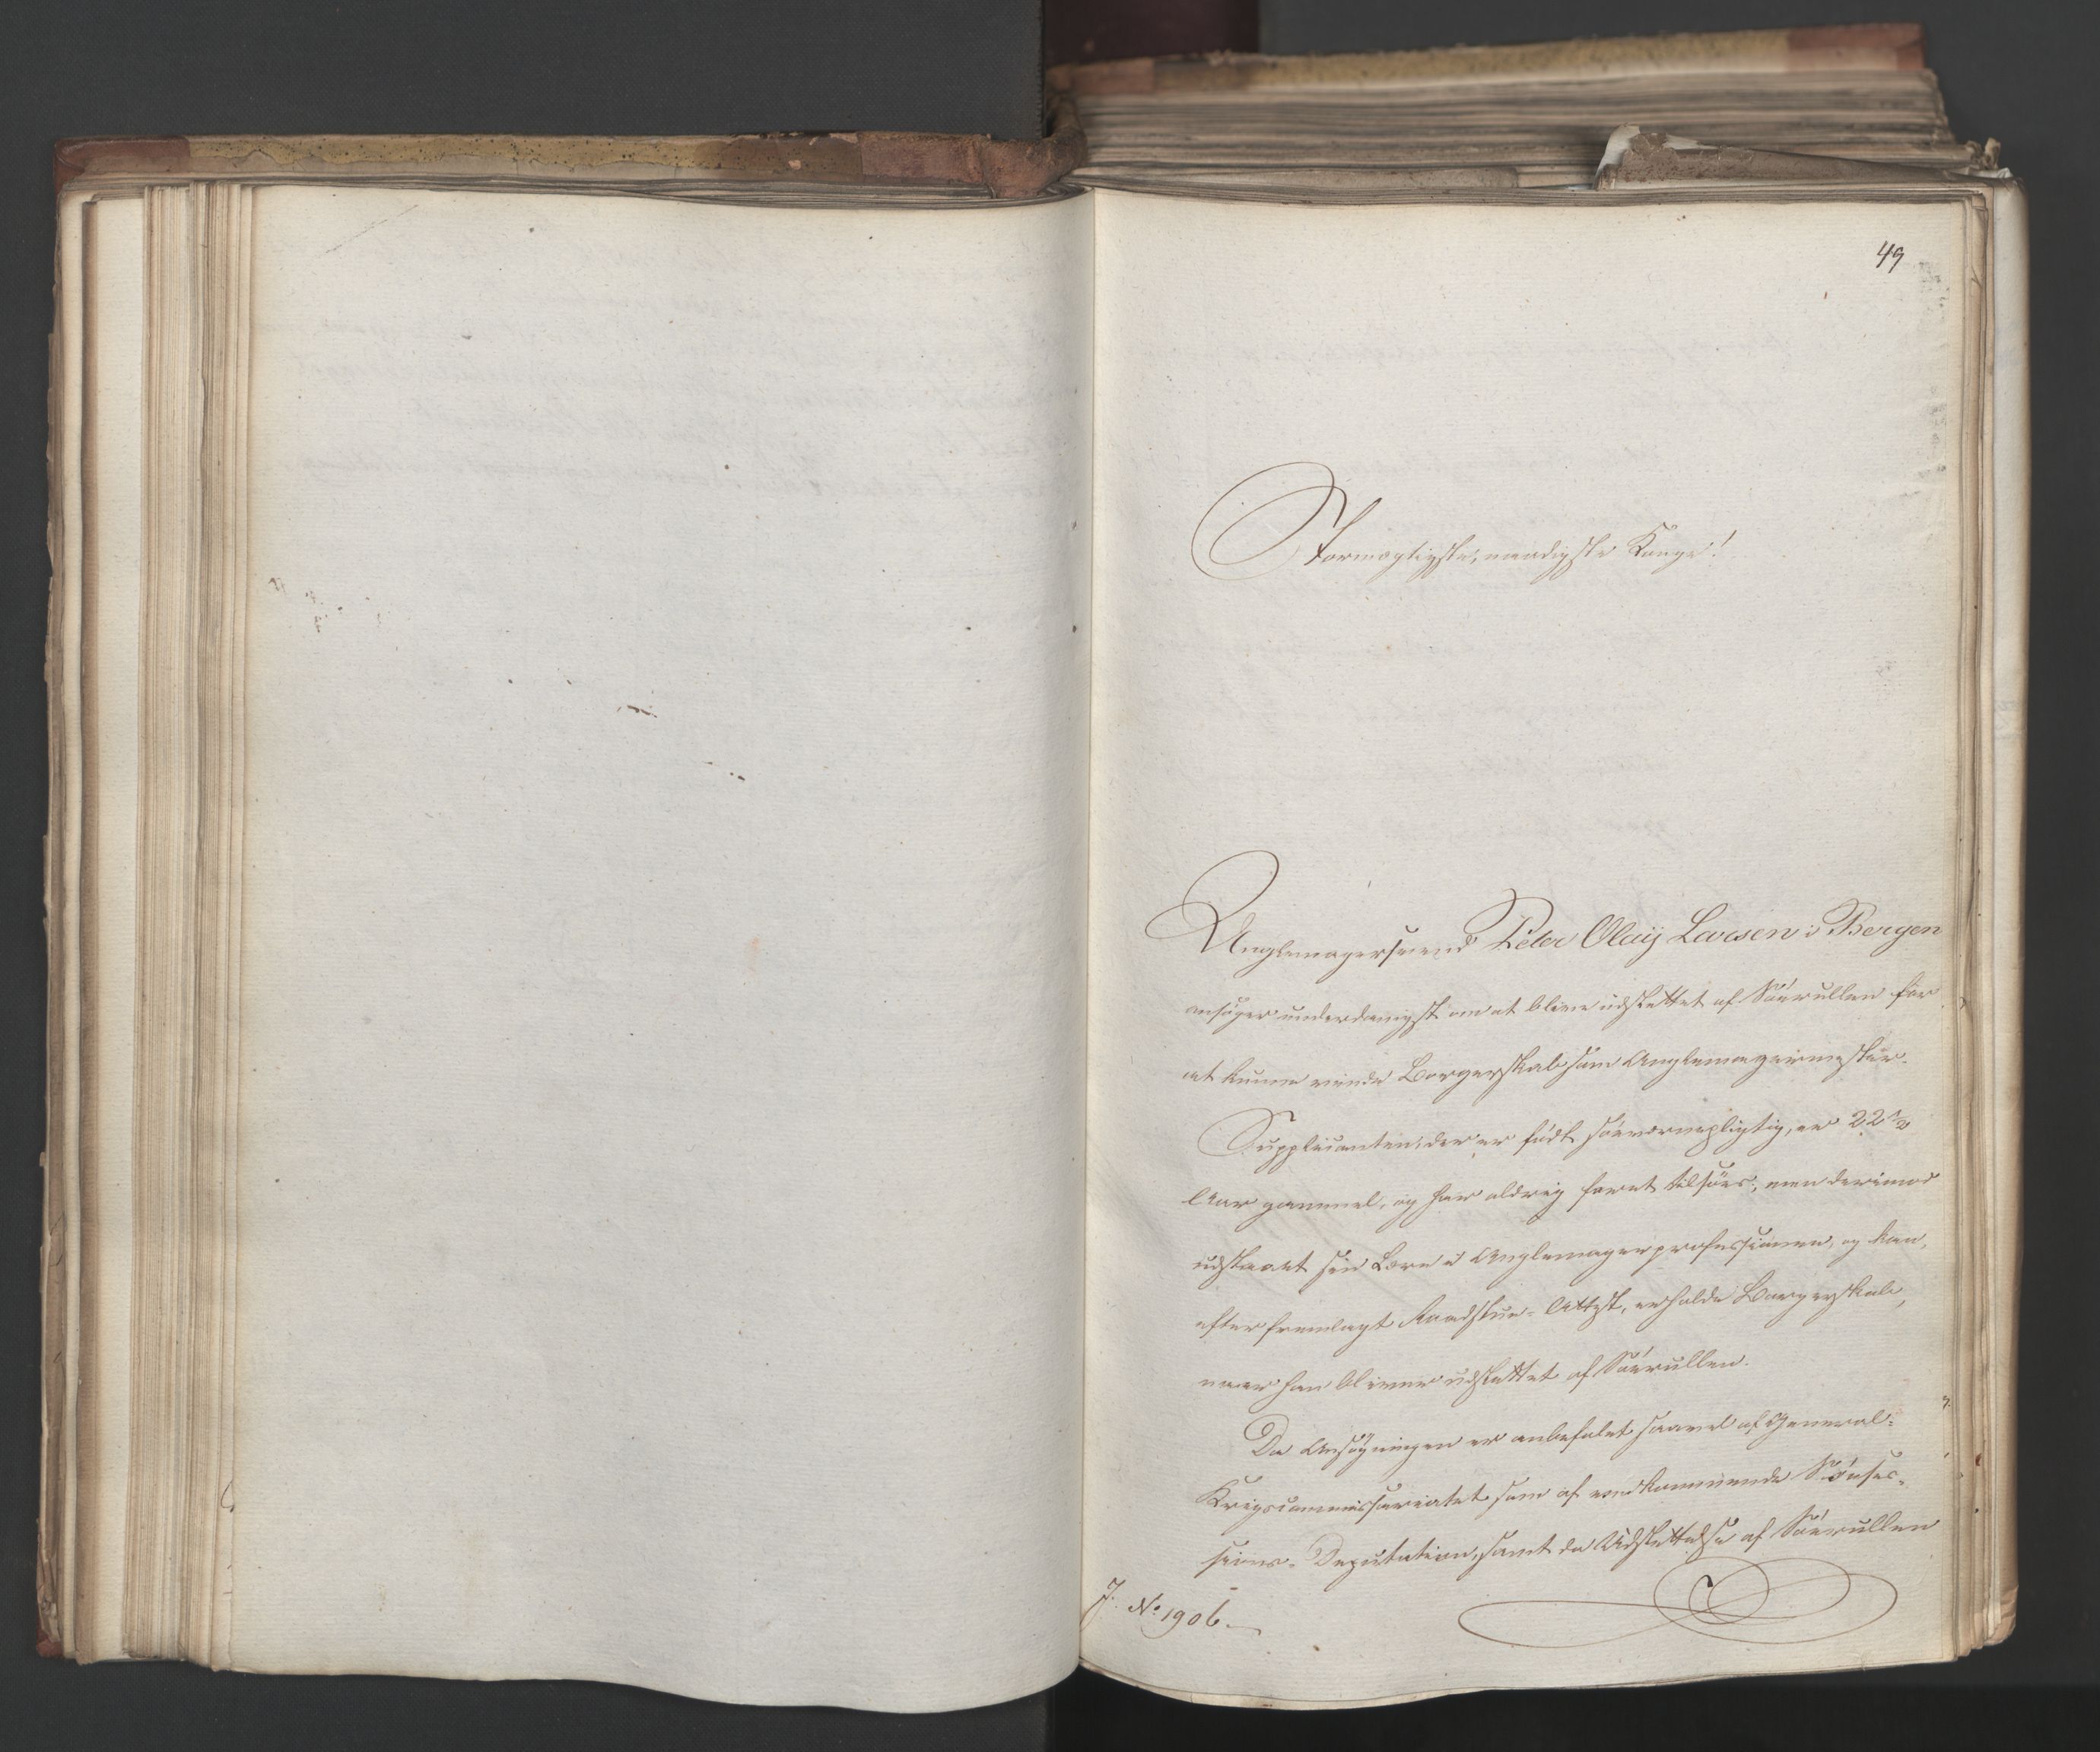 49
Stormægtigste, naadigste Konge!
Anglemagersvend Peter Oluij Larsen i Bergen
ansøger underdanigst om at blive udslettet af Søerullen for
at kunne vinde Borgerskab som Anglemagermester.
Supplicanten, der er født søeværnepligtig, er 22 1/2
Aar gammel, og har aldrig faret tilsøes, men derimod
udstaaet sin Lære i Anglemagerprofessionen, og kan,
efter fremlagt Raadstue-Attest, erholde Borgerskab,
naar han bliver udslettet af Søerullen.
Da Ansøgningen er anbefalet saavel af General-
Krigscommissariatet som af vedkommende Søeses-
sions-Deputation, samt da Udslettelse af Søerullen
J. No 1906.